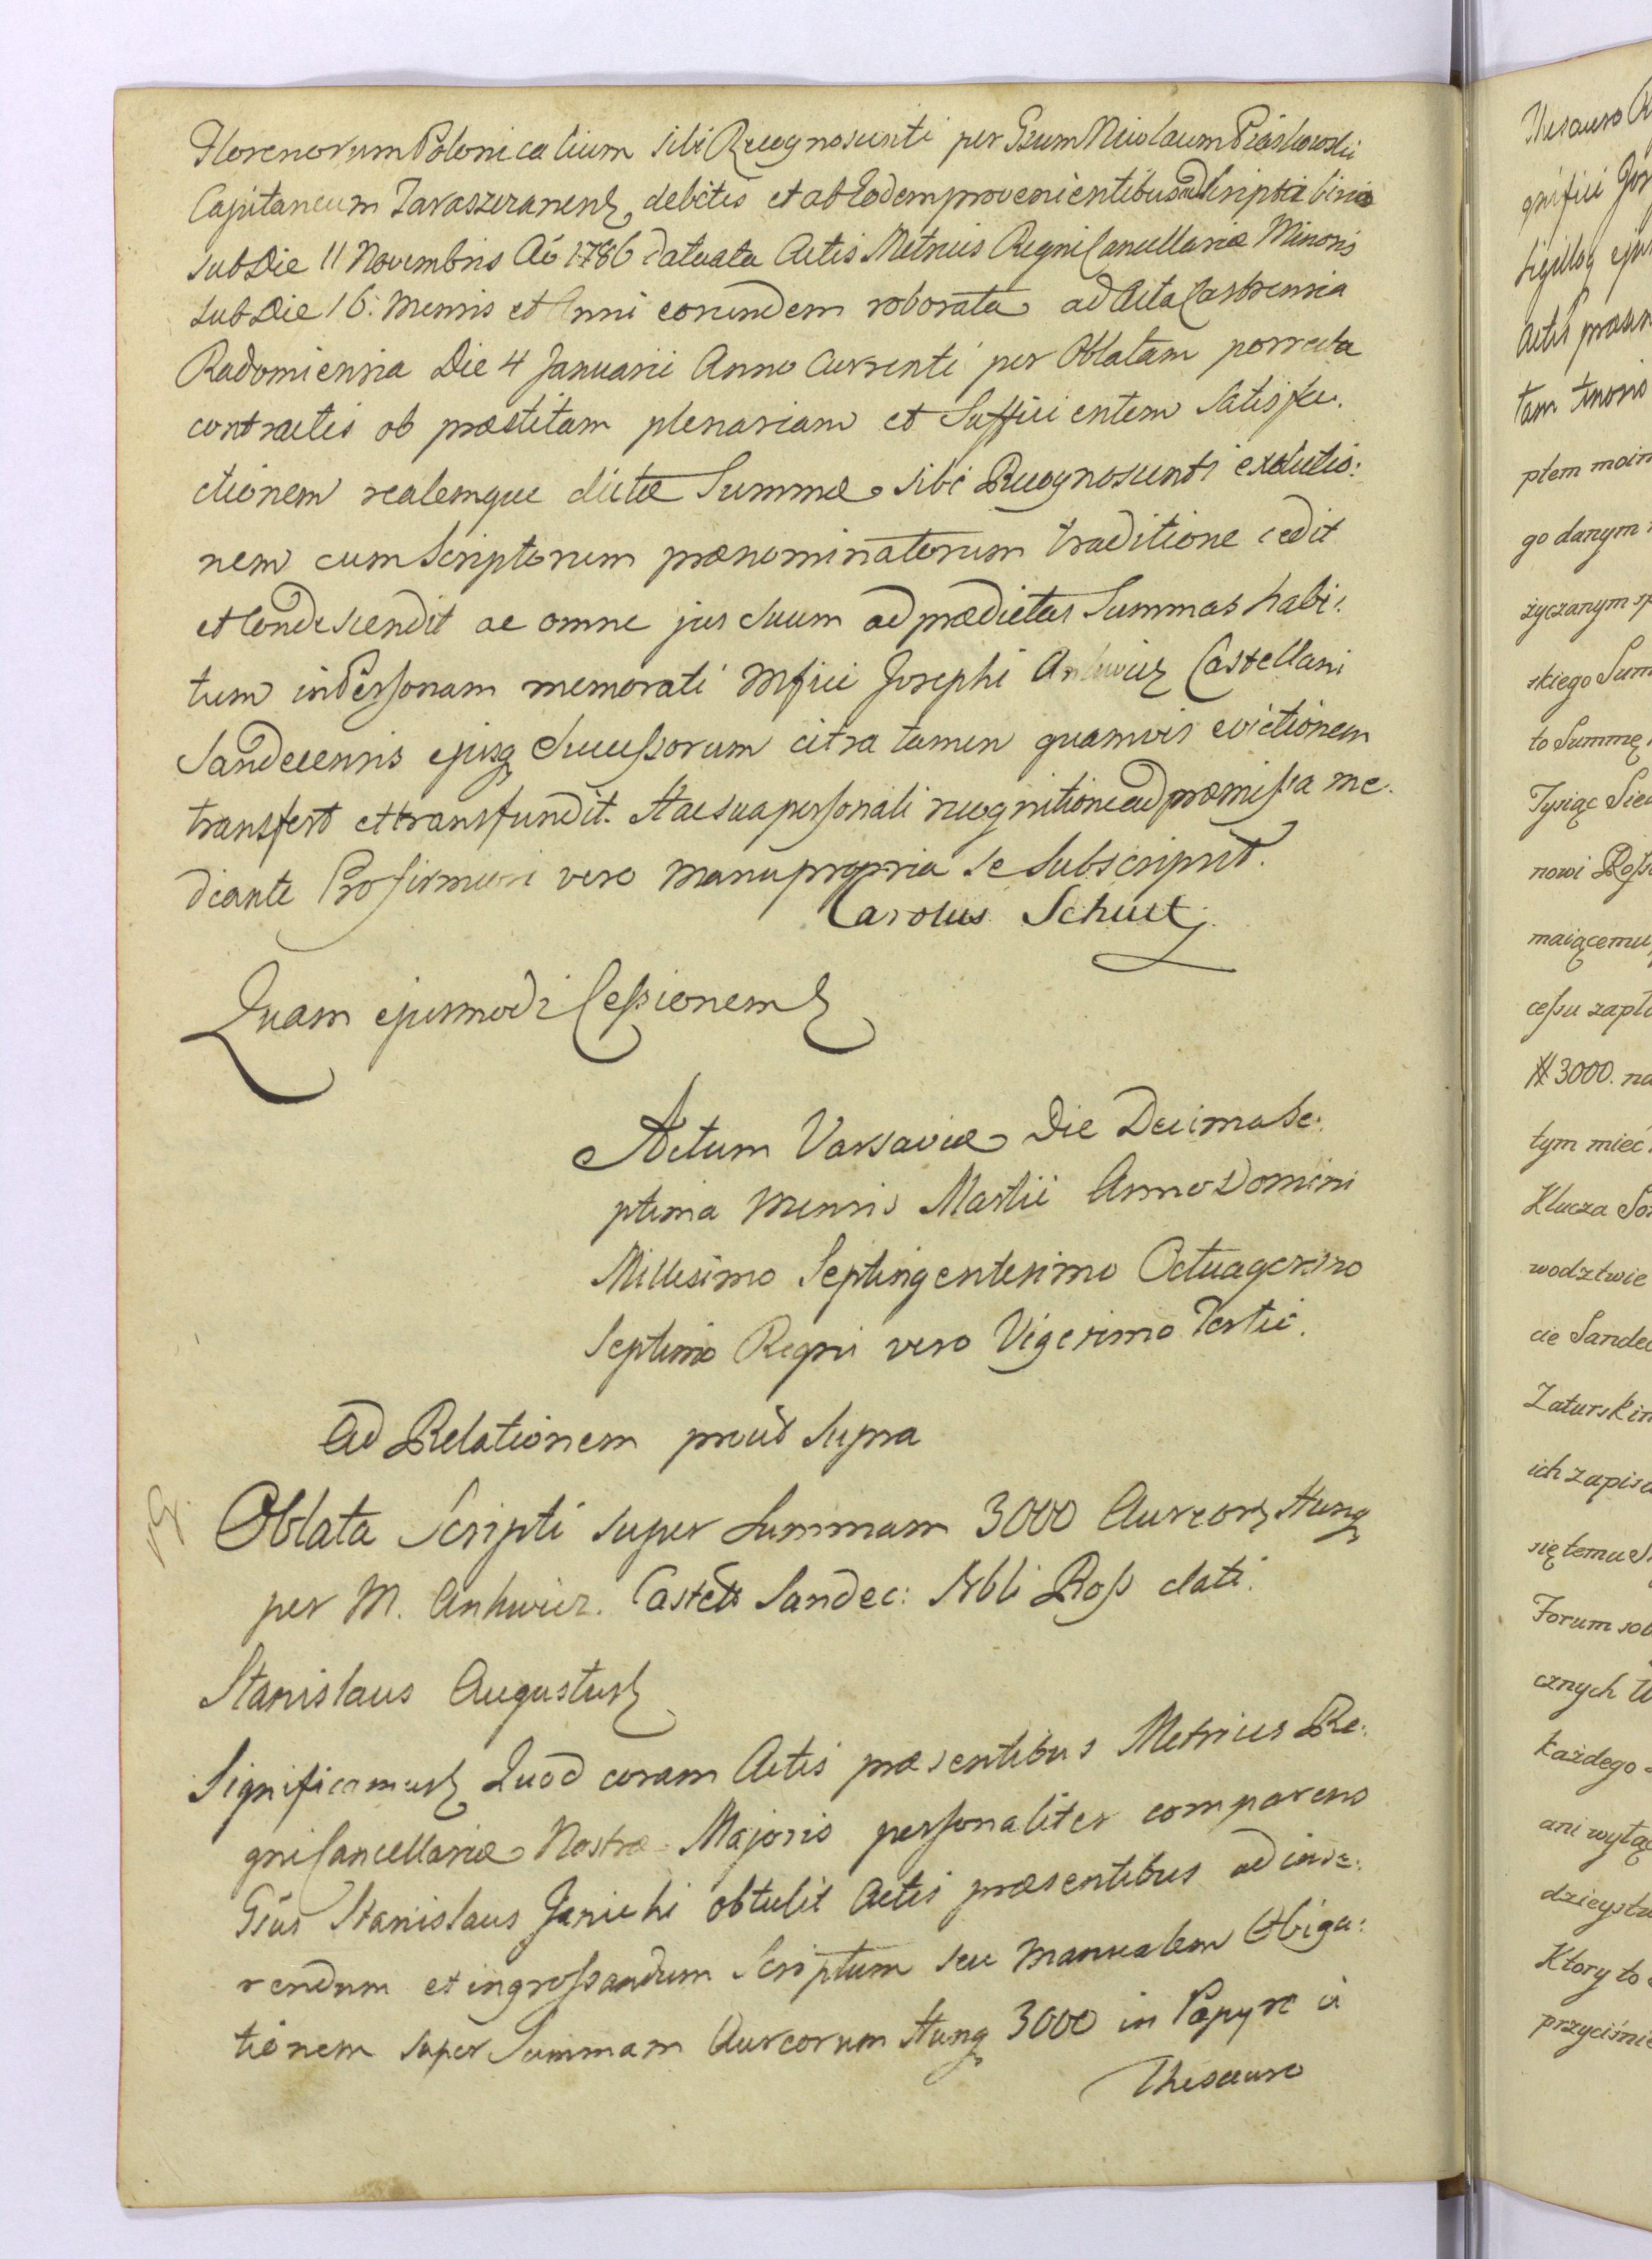 Florenorum Polonicalium sibi Recognoscenti per Gsum Nicolaum Piaskowski
Capitaneum Taraszczanens, debitis et ab Eodem provenientibus ad Scripta bina
sub Die 11 Novembris Aō 1786 datuata Actis Metrices Regni Cancellariæ Minoris
sub Die 16: Mensis et Anni eorundem roborata ad Acta Castrensia
Radomiensia Die 4 Januarii Anno Currenti per Oblatam porrecta
contractis ob præstitam plenariam et Sufficientem Satisfa:
ctionem realemque dictæ Summæ sibi Recognoscenti exolutio:
nem cum Scriptorum prænominatorum traditione cedit
et Condescendit ac omne jus suum ad prædictas Summas habi:
tum in Personam memorati Mfici Josephi Ankwicz Castellani
Sandecensis ejusq Successorum citra tamen quamvis evictionem
transfert et transfundit. Hac sua personali recognitione ad præmissa me:
diante Pro firmiori vero manu propria se Subscripsit.
Carolus Schultz
Quam ejusmodi Cessionem
Actum Varsaviæ Die Decima Se:
ptima Mensis Martii Anno Domini
Millesimo Septingentesimo Octuagesimo
Septimo Regni vero Vigesimo Tertii.
Ad Relationem prout Supra
Oblata Scripti super Summam 3000 Aureor Hung
per M. Ankwicz. Castell Sandec: Nbli Ross dati.
Stanislaus Augustus
Significamus Quod coram Actis præsentibus Metrices Re:
gni Cancellariæ Nostræ Majoris personaliter comparens
Gsus Stanislaus Janicki obtulit Actis præsentibus ad inse:
rendum et ingrossandum Scriptum seu manualem Obliga:
tionem super Summam Aureorum Hung 3000 in Papyro è
Thesauro
Thesauro
gnifici Jos
sigilloq ejus
Actis præsen
tam tenoris
ptem moim
go danym
życzanym
skiego Sum
to Summę
Tysiąc Sied
nowi Ross
maiącemu
cessu zapła
# 3000. na
tym mieć
Klucza
wodztwie
cie Sandec
Zaturskim
ich zapis
się temu
Forum sob
cznych
każdego
ani wyłą
dzieystw
Ktory to
przyciśnie